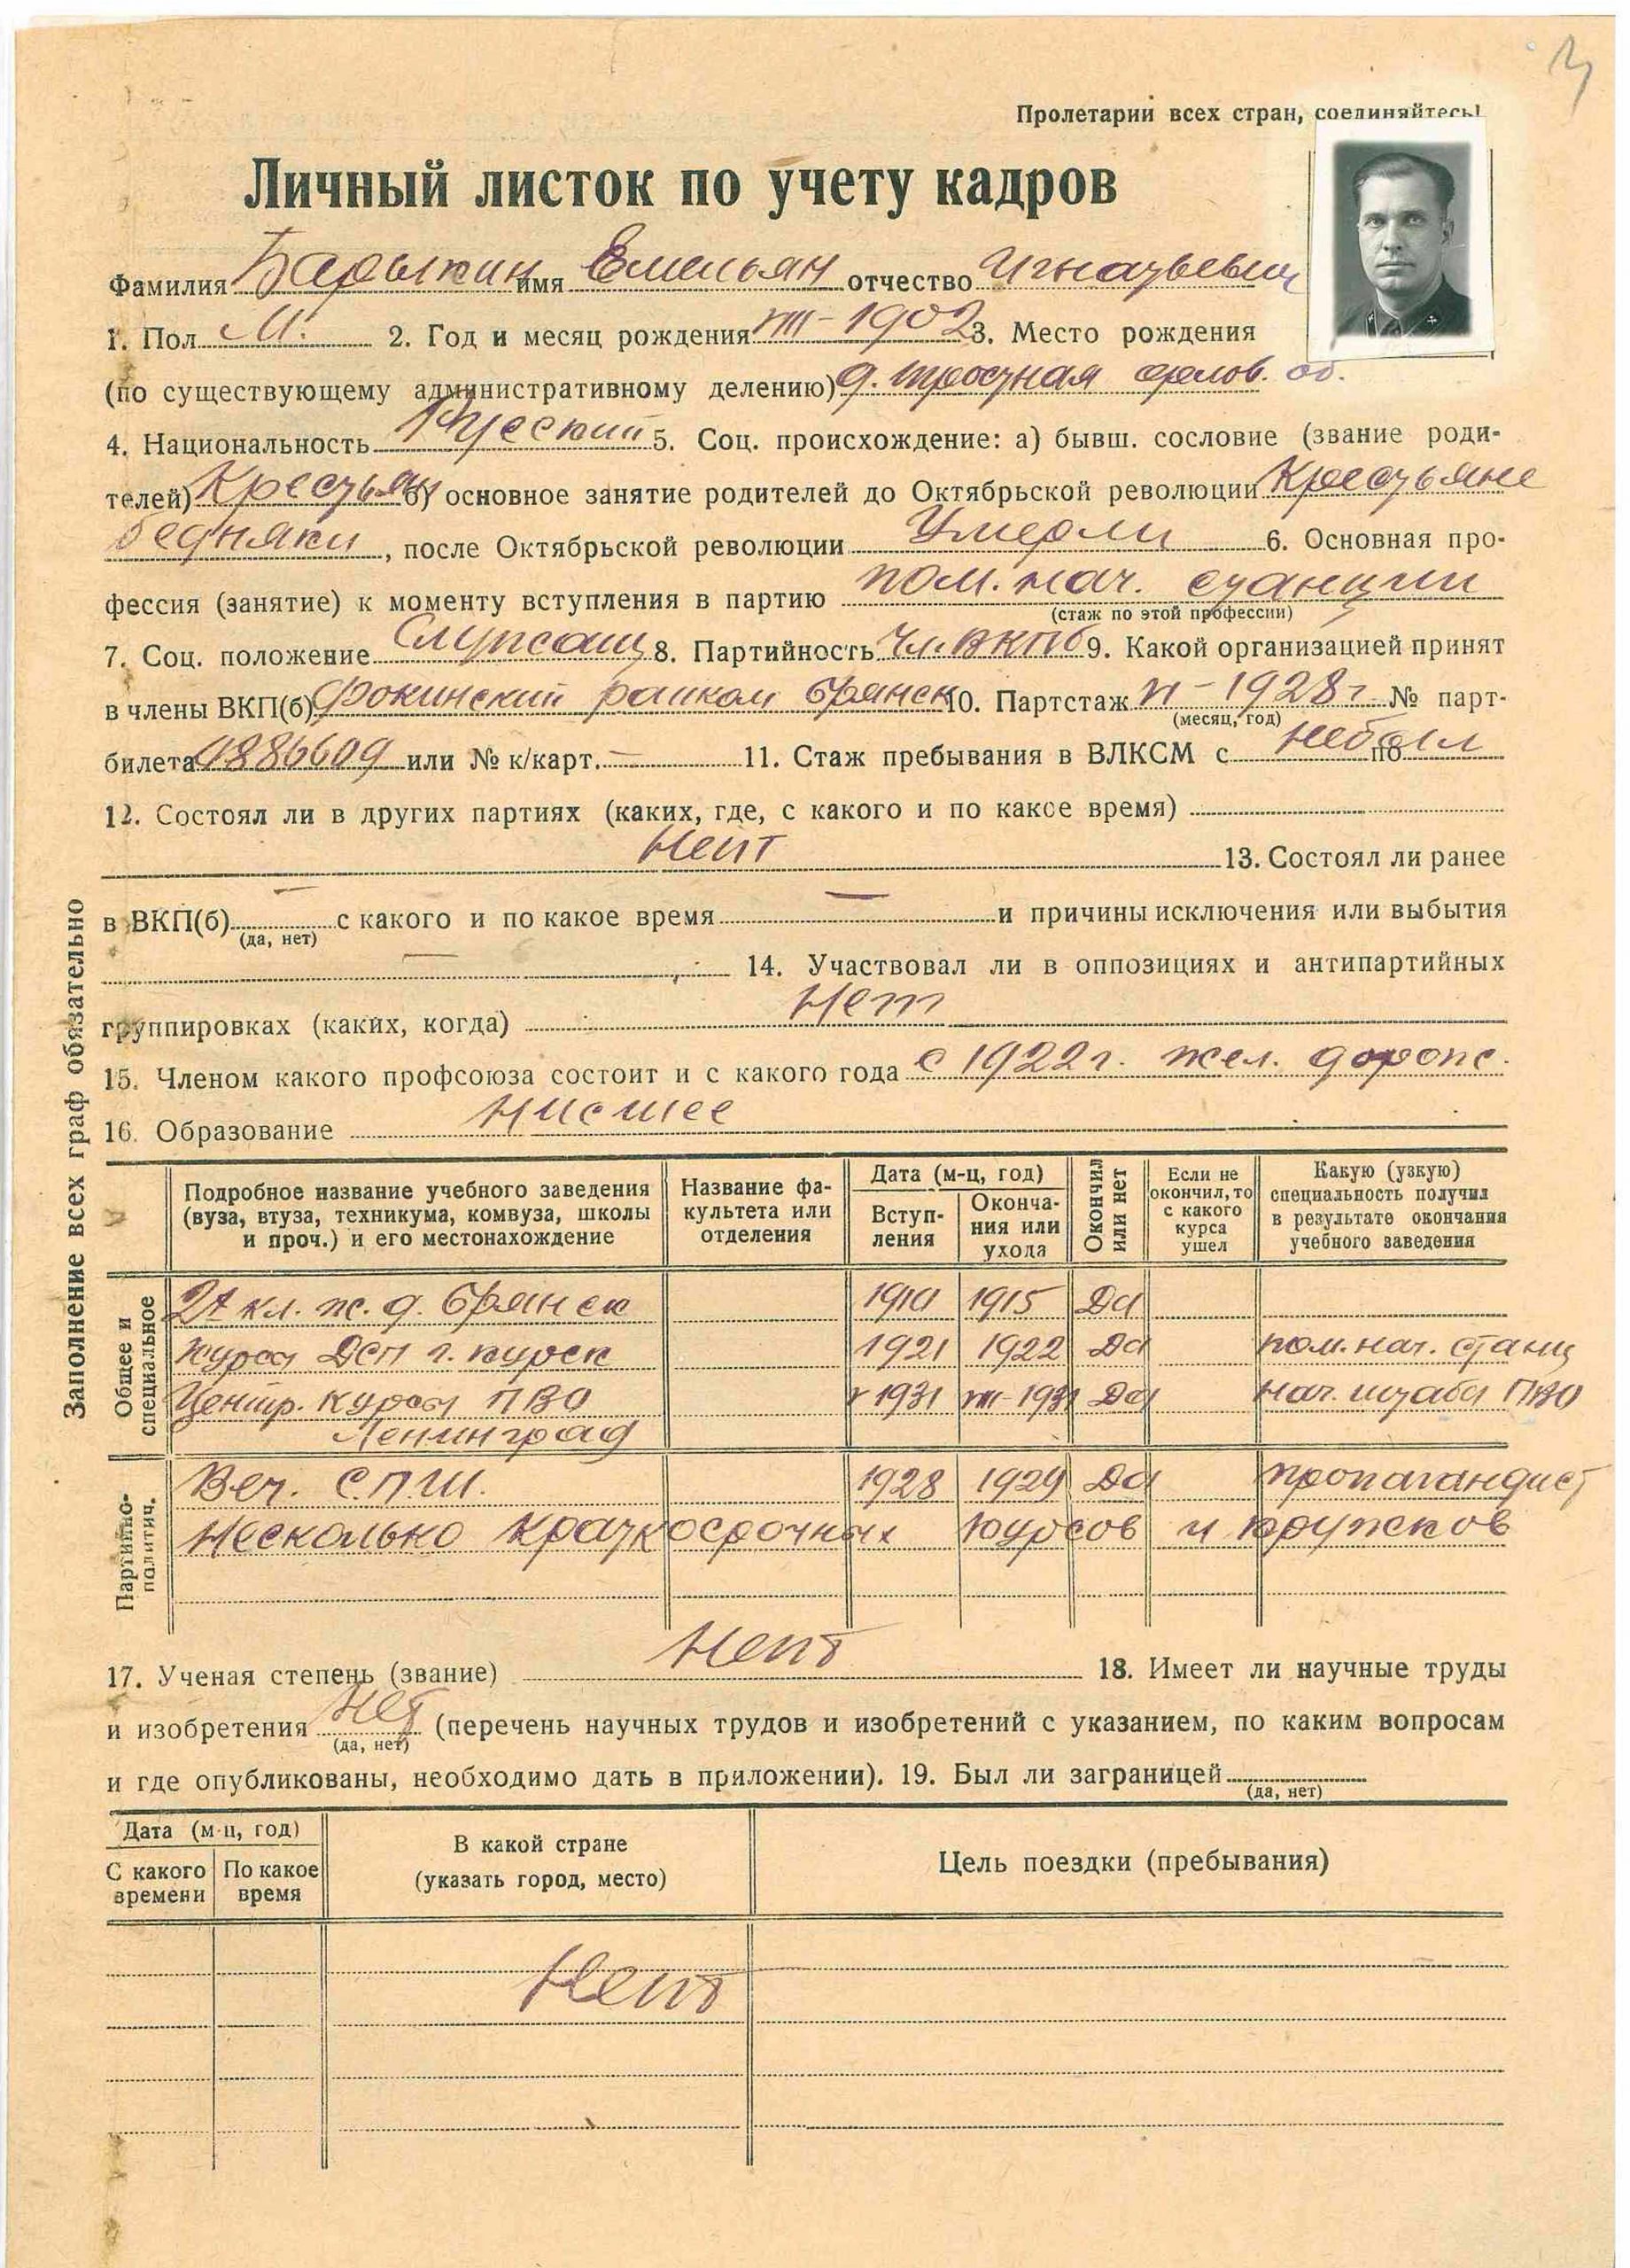 Пролетарии всех стран, соединяйтесь!
Личный листок по учету кадров
Фамилия Барыкин имя Емельян отчество Игнатьевич
1. Пол М. 2. Год и месяц рождения VIII-1902 3. Место рождения
(по существующему административному делению) д. Тросная орлов. об.
4. Национальность Русский 5. Соц. происхождение: а) бывш. сословие (звание роди-
телей) Крестьян б) основное занятие родителей до Октябрьской революции Крестьяне
бедняки, после Октябрьской революции Умерли 6. Основная про-
фессия (занятие) к моменту вступления в партию пом. нач. станции
(стаж по этой профессии)
7. Соц. положение Служащ 8. Партийность Чл. ВКПб 9. Какой организацией принят
в члены ВКП(б) Фокинский райком Брянск 10. Партстаж VI-1928 г. № парт-
(месяц, год)
билета 0886609 или № к/карт. — 11. Стаж пребывания в ВЛКСМ с не был по
12. Состоял ли в других партиях (каких, где, с какого и по какое время)
Нет 13. Состоял ли ранее
в ВКП(б) — с какого и по какое время — и причины исключения или выбытия
(да, нет)
— 14. Участвовал ли в оппозициях и антипартийных
группировках (каких, когда) Нет
15. Членом какого профсоюза состоит и с какого года с 1922 г. жел. дорож.
16. Образование Нисшее
Заполнение всех граф обязательно
Подробное название учебного заведения (вуза, втуза, техникума, комвуза, школы и проч.) и его местонахождение
Название фа-культета или отделения
Дата (м-ц, год)
Вступ-ления
Оконча-ния или ухода
Окончил или нет
Если не окончил, то с какого курса ушел
Какую (узкую) специальность получил в результате окончания учебного заведения
Общее и специальное
2х кл. ж. д. Брянск 1910 1915 Да
Курсы ДСП г. Курск 1921 1922 Да пом. нач. станц
Центр. курсы ПВО V 1931 VIII-1931 Да Нач. штаба ПВО
Ленинград
Партийно-политич.
Веч. С.П.Ш. 1928 1929 Да пропагандист
Несколько краткосрочных курсов и кружков
17. Ученая степень (звание) Нет 18. Имеет ли научные труды
и изобретения Нет (перечень научных трудов и изобретений с указанием, по каким вопросам
(да, нет)
и где опубликованы, необходимо дать в приложении). 19. Был ли заграницей
(да, нет)
Дата (м-ц, год)
С какого времени
По какое время
В какой стране
(указать город, место)
Цель поездки (пребывания)
Нет